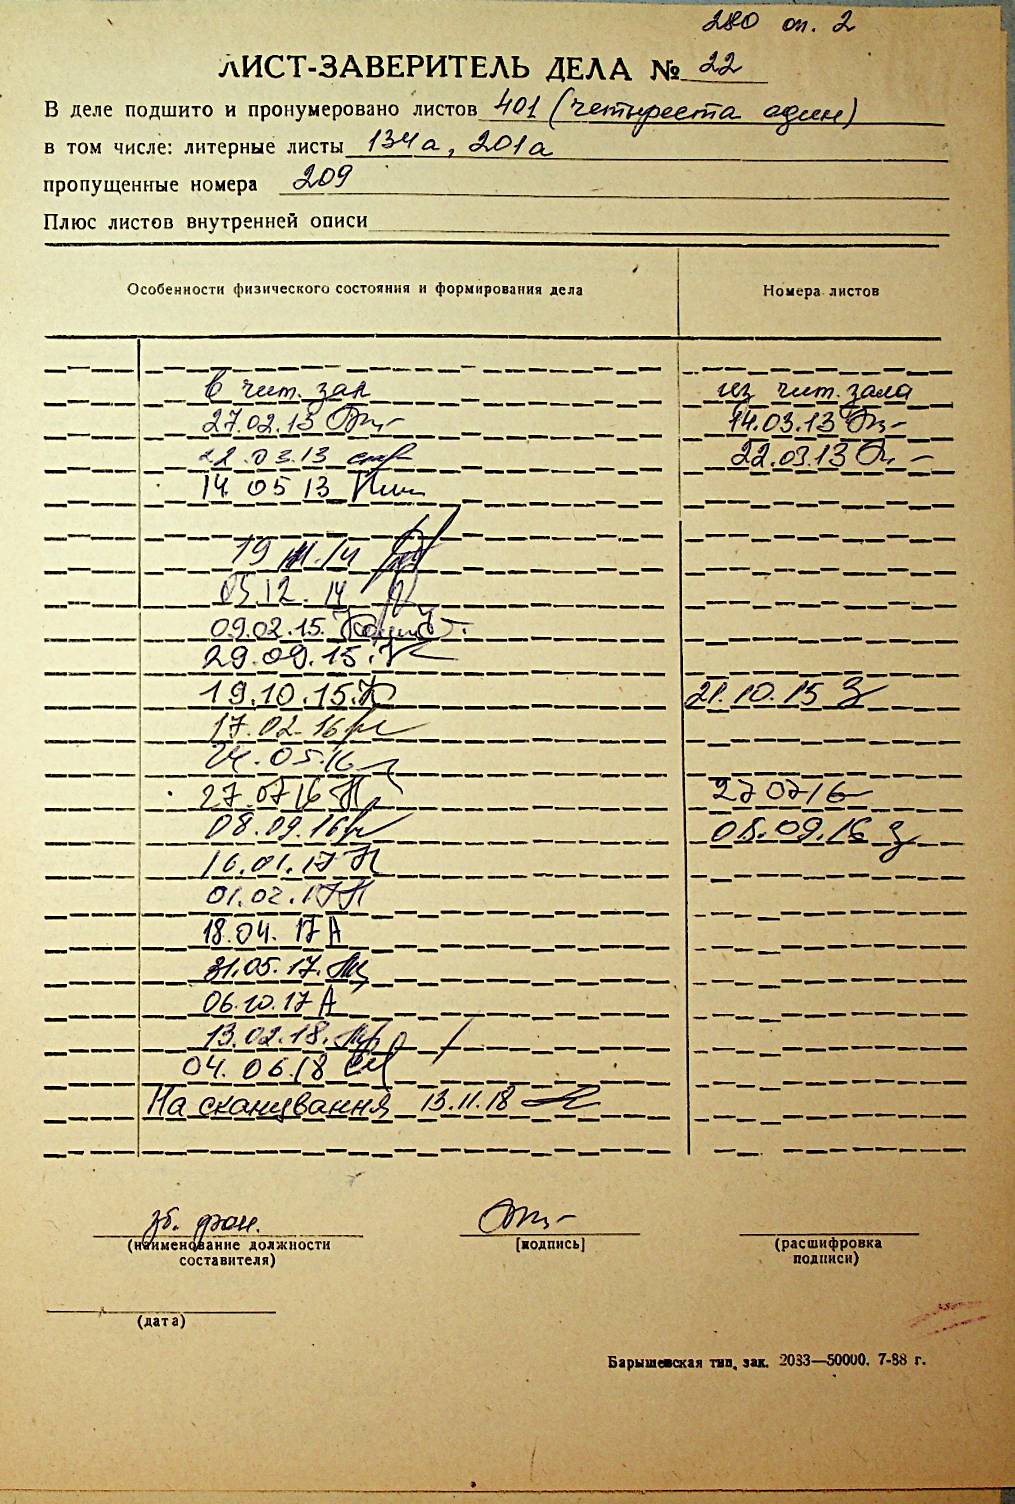 280 оп. 2
ЛИСТ-ЗАВЕРИТЕЛЬ ДЕЛА № 22
В деле подшито и пронумеровано листов 401 (четыреста один)
в том числе: литерные листы 134а, 201а
пропущенные номера 209
Плюс листов внутренней описи
Особенности физического состояния и формирования дела Номера листов
в чит. зал из чит. зала
27.02.13 14.03.13
22.03.13 22.03.13
14 05 13
19 /14
05 12. 14
09.02.15.
29.09.15.
19.10.15. 21.10.15
17.02.16
24.05.16
27.07 16 27 07 16
08.09.16 08.09.16
16.01.17
01.02.17
18.04. 17 А
31.05.17.
06.10.17 А
13.02.18.
04. 06.18
На сканування 13.11.18
зб. фон.
(наименование должности составителя) [подпись] (расшифровка подписи)
(дата)
Барышевская тип. зак. 2033—50000. 7-88 г.